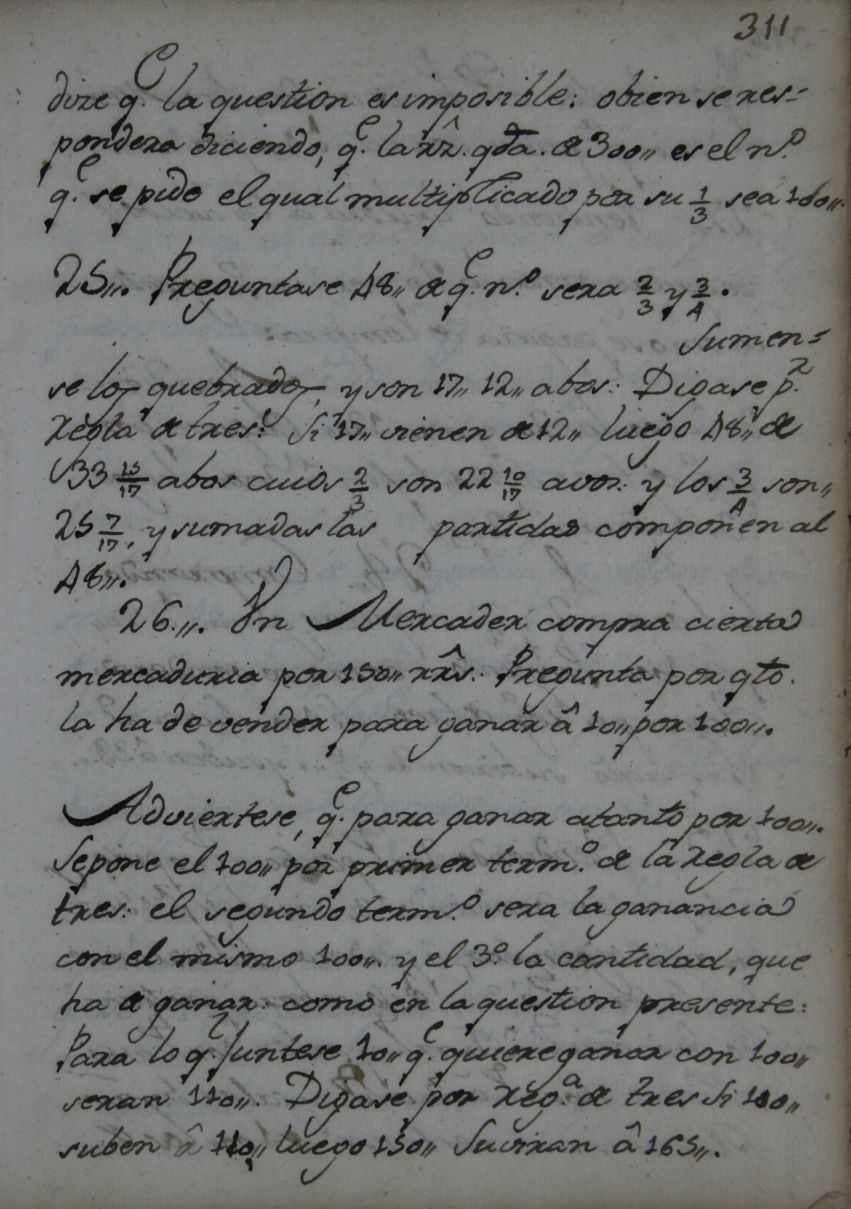 311
dize q.e la question es imposible: obien se res=
pondera diciendo, q.e la rẑ. qda. de 300,, es el n.o
q.e se pide el qual multiplicado por su 1/3 sea 100,,.
25,,. Preguntase 48,, de q.e n.o sera 2/3 y 3/4.
Sumen=
se los quebrados, y son 17,, 12,, abos: Digase p.r
regla de tres: Si 17,, vienen de 12,, luego 48,, de
33 15/17 abos cuios 2/3 son 22 10/17 avos: y los 3/4 son,,
25 7/17, y sumadas las partidas componen al
48,,.
26,,. Un Mercader compra cierta
mercaduria por 150,, rr̂s. Pregunta por qto.
la ha de vender para ganar â 10,, por 100,,.
Adviertese, q.e para ganar atanto por 100,,.
Se pone el 100,, por primer term.o de la regla de
tres: el segundo term.o sera la ganancia
con el mismo 100,,. y el 3.o la cantidad, que
ha de ganar: como en la question presente:
Para lo q.e Juntese 10,, q.e quiere ganar con 100,,
seran 110,,. Digase por reg.a de tres Si 100,,
suben â 110,, luego 150,, Suviran â 165,,.